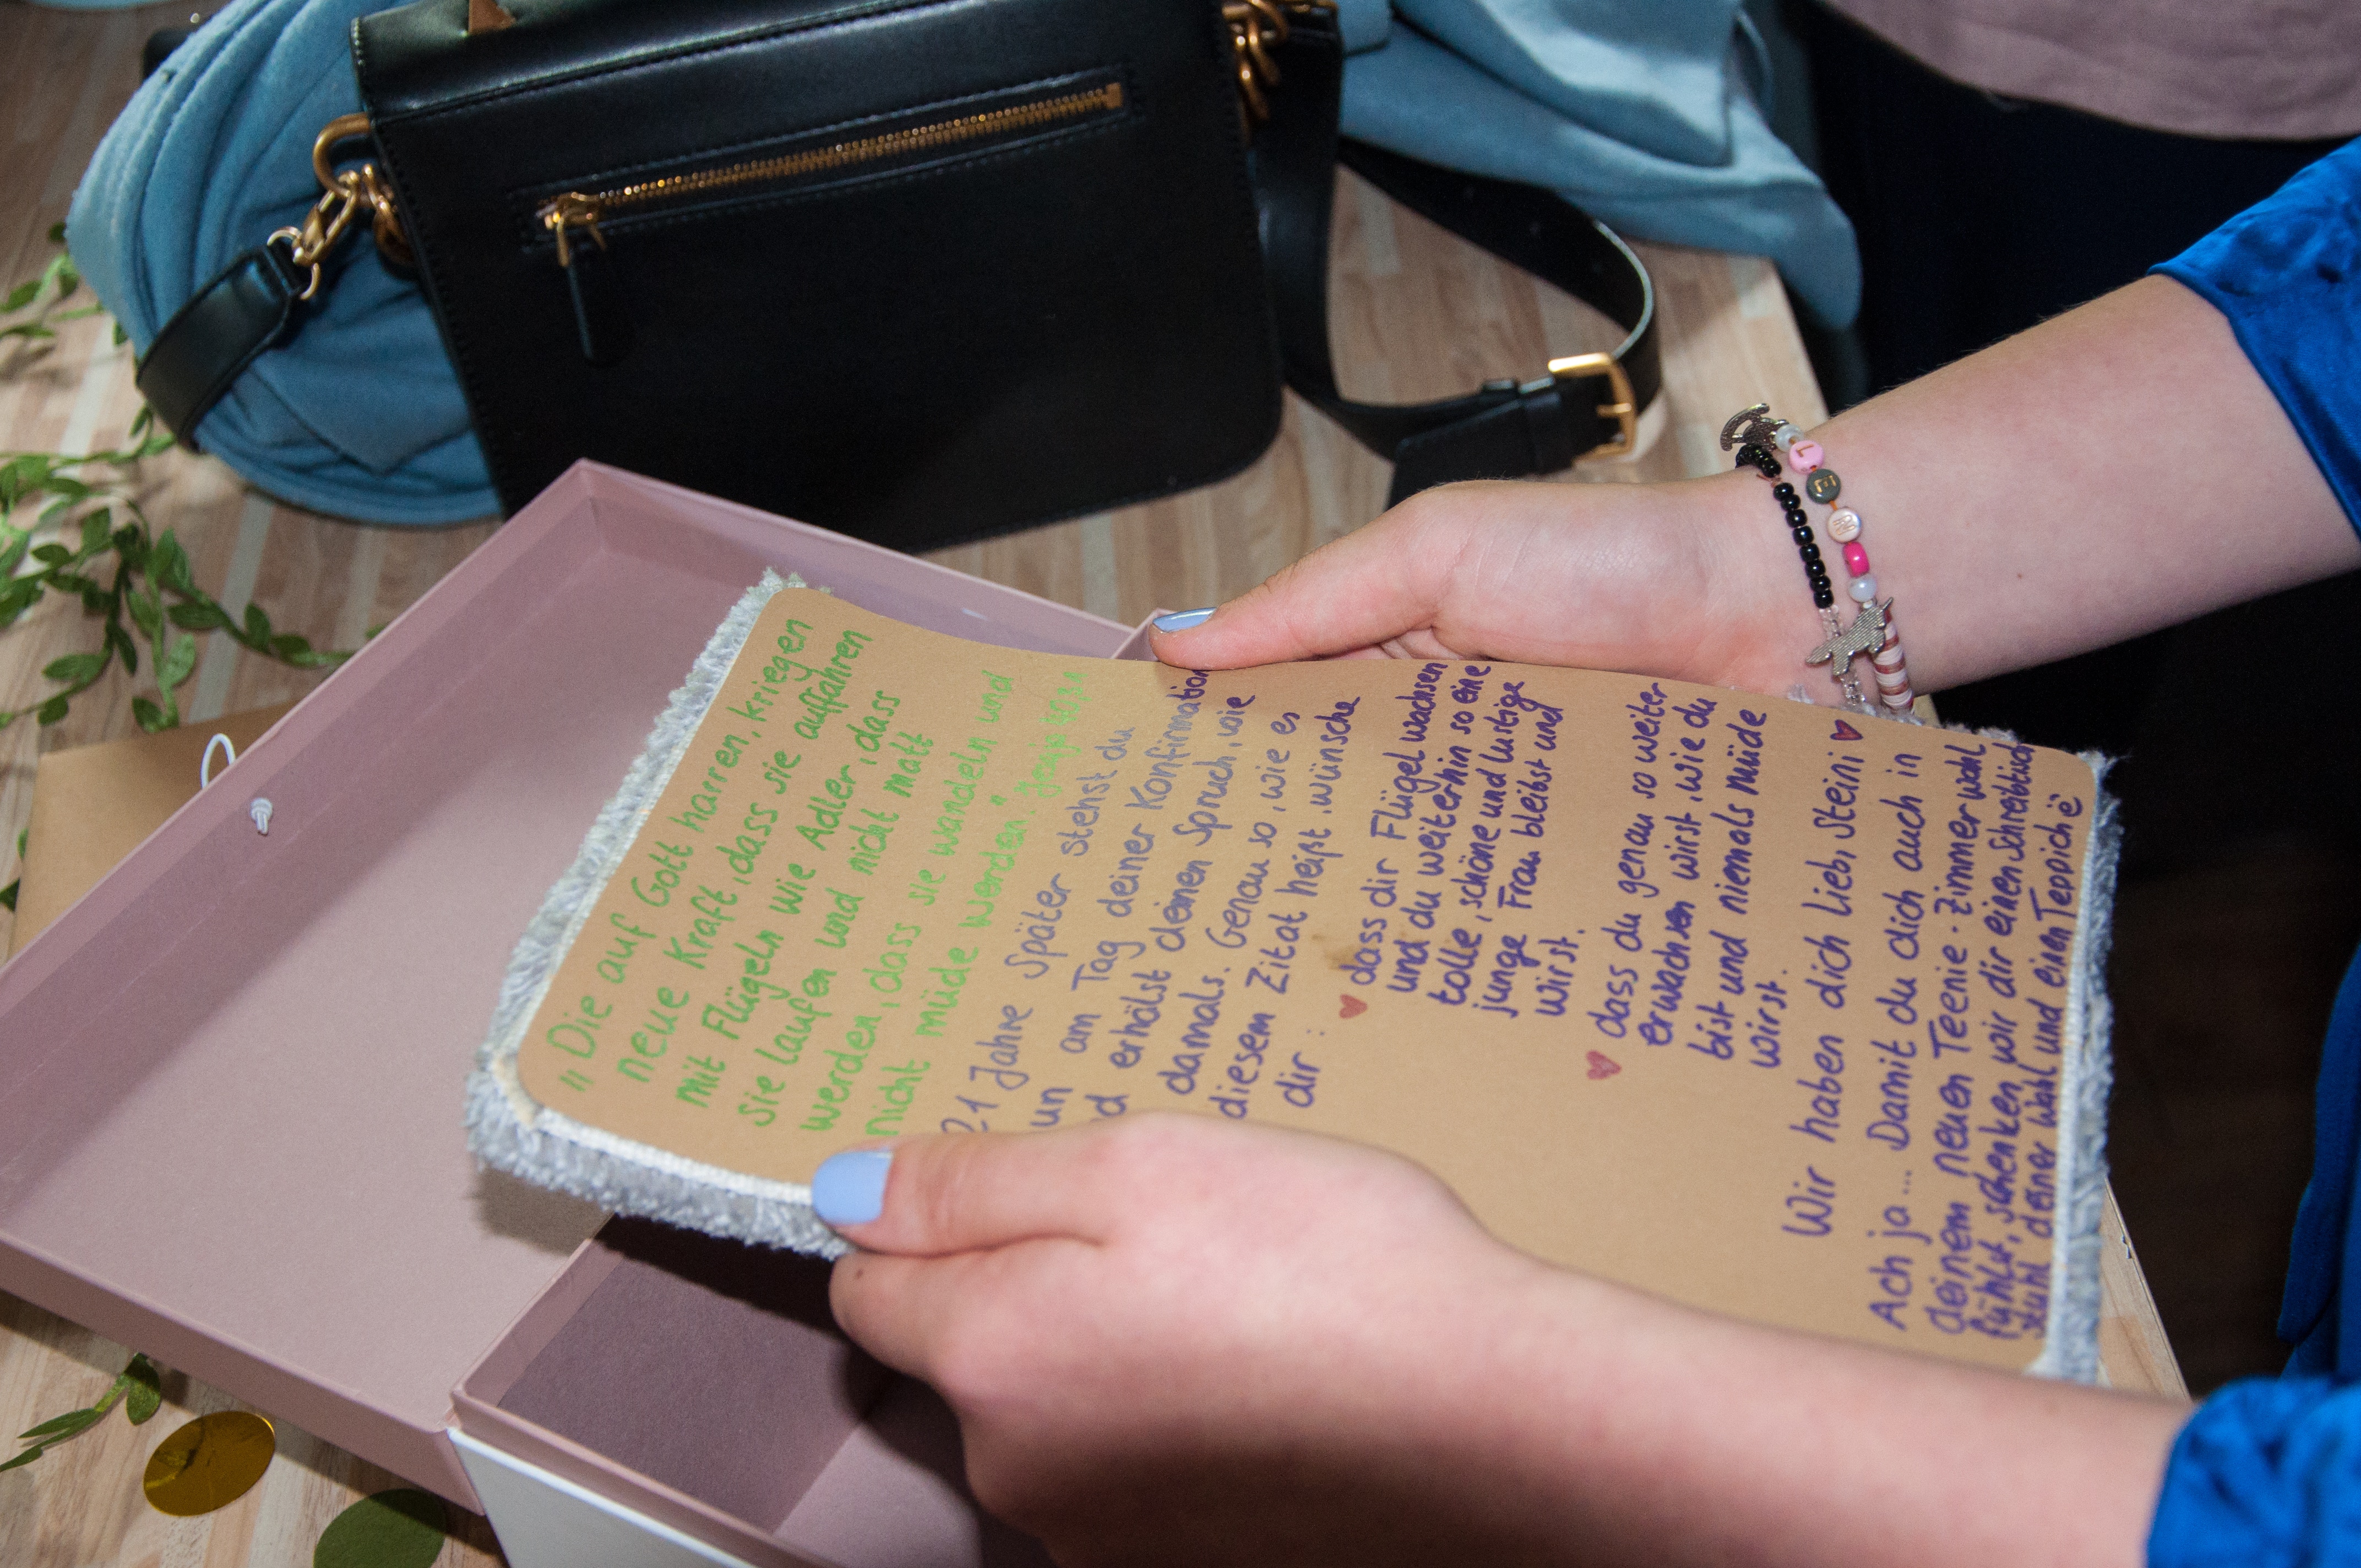 "Die auf Gott harren, kriegen
neue Kraft, dass sie auffahren
mit Flügeln wie Adler, dass
sie laufen und nicht matt
werden, dass sie wandeln und
nicht müde werden."
21 Jahre später stehst du
un am Tag deiner Konfirmation
d erhälst deinen Spruch, wie
damals. Genau so, wie es
diesem Zitat heißt, wünsche
dir:
♥ dass dir Flügel wachsen
und du weiterhin so eine
tolle, schöne und lustige
junge Frau bleibst und
wirst.
♥ dass du genau so weiter
erwachsen wirst, wie du
bist und niemals müde
wirst.
Wir haben dich lieb, Steini ♥
Ach ja... Damit du dich auch in
deinem neuen Teenie-Zimmer wohl
fühlst, schenken wir dir einen Schreibtisch
stuhl deiner Wahl und einen Teppich
L
E